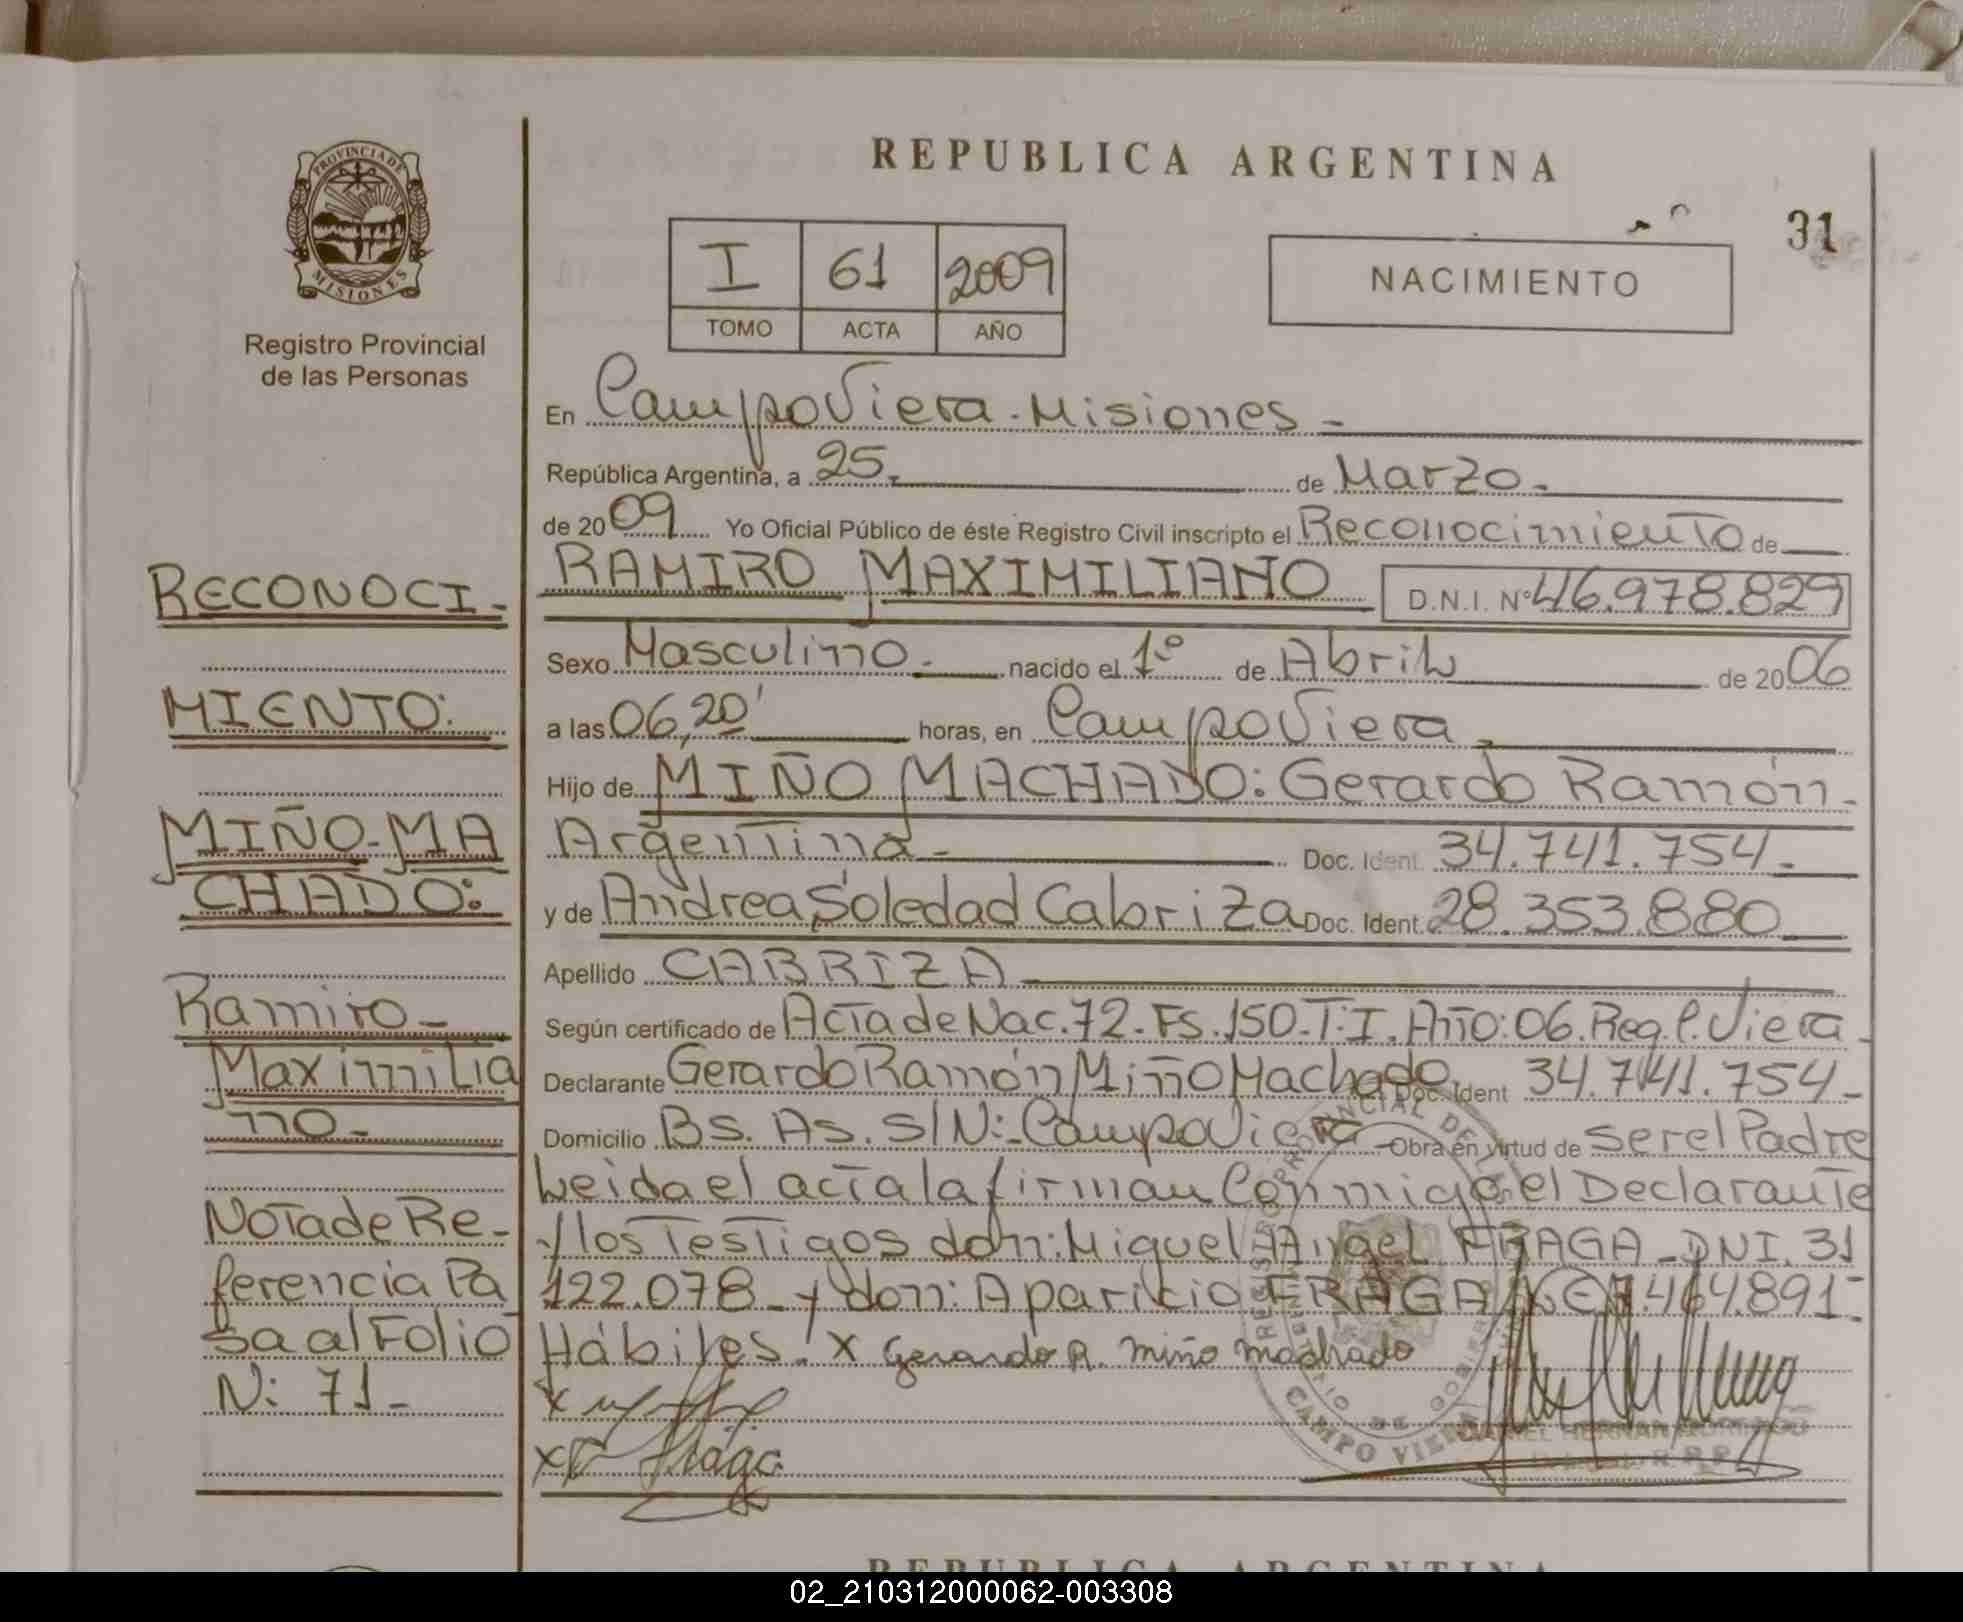 REPUBLICA ARGENTINA
31
PROVINCIA DE
MISIONES
Registro Provincial
de las Personas
I 61 2009
TOMO ACTA AÑO
NACIMIENTO
En Campo Viera - Misiones -
República Argentina, a 25. de Marzo.
de 2009 Yo Oficial Público de éste Registro Civil inscripto el Reconocimiento de
RAMIRO MAXIMILIANO D.N.I. Nº 46.978.829
Sexo Masculino. nacido el 1º de Abril de 2006
a las 06,20' horas, en Campo Viera
Hijo de MIÑO MACHADO: Gerardo Ramón.
Argentina - Doc. Ident. 34.741.754.
y de Andrea Soledad Cabriza Doc. Ident. 28.353.880
Apellido CABRIZA
Según certificado de Acta de Nac. 72. Fs. 150. T: I. Año: 06. Reg. C. Viera
Declarante Gerardo Ramón Miño Machado Doc. Ident 34.741.754-
Domicilio Bs. As. S/N:- Campo Viera Obra en virtud de ser el Padre
Leida el acta la firman Conmigo el Declarante
y los Testigos don: Miguel Angel FRAGA - DNI. 31
122.078 - y don: Aparicio FRAGA 7.464.891-
Hábiles. X Gerardo R. Miño Machado
X
X Fraga
RECONOCI-
MIENTO:
MIÑO-MA
CHADO:
Ramiro-
Maximilia
no-
Nota de Re-
ferencia Pa
sa al Folio
N: 71-
CAMPO VIERA
REPUBLICA ARGENTINA
02_210312000062-003308